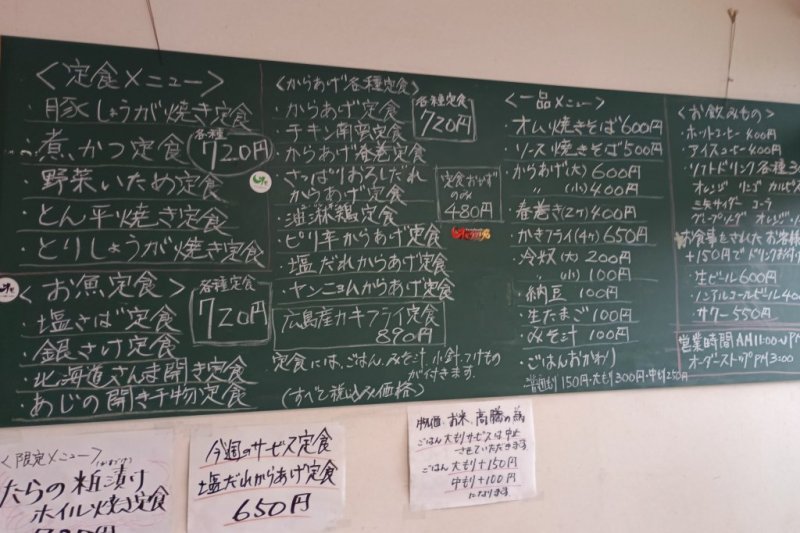 <定食メニュー>
・豚しょうが焼き定食
・煮かつ定食
・野菜いため定食
・とん平焼き定食
・とりしょうが焼き定食
各種
720円
<お魚定食>
・塩さば定食
・銀さけ定食
・北海道さんま開き定食
・あじの開き干物定食
各種定食
720円
<からあげ各種定食>
・からあげ定食
・チキン南蛮定食
・からあげ春巻定食
・さっぱりおろしだれ
からあげ定食
・油淋鶏定食
・ピリ辛からあげ定食
・塩だれからあげ定食
・ヤンニョムからあげ定食
各種定食
720円
定食おかず
のみ
480円
広島産カキフライ定食
890円
定食には、ごはん、みそ汁、小鉢、つけもの
が付きます。
(すべて税込み価格)
<一品メニュー>
・オムり焼きそば600円
・ソース焼きそば500円
・からあげ(大)600円
〃 (小)400円
・春巻き(2ケ)400円
・かきフライ(4ケ)650円
・冷奴(大)200円
〃 (小)100円
・納豆 100円
・生たまご 100円
・みそ汁 100円
・ごはんおかわり
普通盛り150円・大もり300円・中もり250円
<お飲みもの>
・ホットコーヒー400円
・アイスコーヒー400円
・ソフトドリンク各種
オレンジ リンゴ カルピス
三矢サイダー コーラ
お食事をされたお客様
+150円でドリンクお付け
・生ビール600円
・ノンアルコールビール
・サワー550円
営業時間 AM11:00〜PM
オーダーストップPM3:00
<限定メニュー>
たらの粕漬け
ホイル焼き定食
今週のサービス定食
塩だれからあげ定食
650円
物価、お米、高騰の為
ごはん大もりサービスは中止
させていただきます
ごはん 大もり+150円
中もり+100円
になります